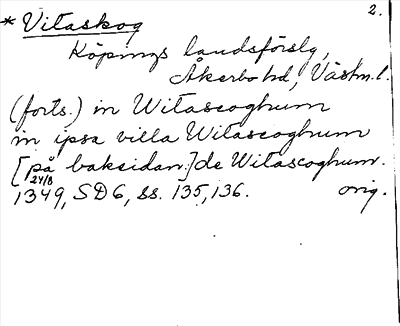 2.
* Vitaskog
Köpings landsförslg,
Åkerbo hd, Västm.l.
(forts.) in Witascoghum
in ipsa villa Witascoghum
[på baksidan:] de Witascoghum.
24/8
1349, SD6, ss. 135, 136. orig.